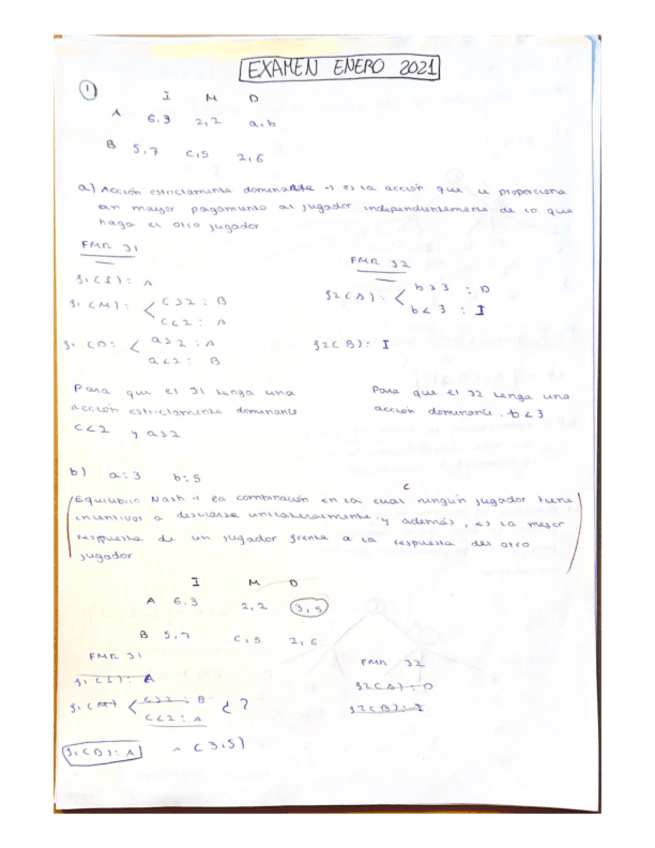 EXAMEN ENERO 2021
1
I M D
A 6,3 2,2 a,b
B 5,7 c,5 2,6
a) Acción estrictamente dominante → es la acción que le proporciona
un mayor pagamento al jugador independientemente de lo que
haga el otro jugador
FMR J1
FMR J2
J1(I): A
J1(M): c>2 : B
c<2 : A
J1(D): a>2 : A
a<2 : B
J2(A): b>3 : D
b<3 : I
J2(B): I
Para que el J1 tenga una
acción estrictamente dominante
c<2 y a>2
Para que el J2 tenga una
acción dominante, b<3
b) a:3 b:5
c
Equilibrio Nash → la combinación en la cual ningún jugador tiene
incentivos a desviarse unilateralmente y además, es la mejor
respuesta de un jugador frente a la respuesta del otro
jugador
I M D
A 6,3 2,2 3,5
B 5,7 c,5 2,6
FMR J1
J1(I): A
J1(M) c>2 : B
c<2 : A ¿?
J1(D): A (3,5)
FMR J2
J2(A): D
J2(B): I